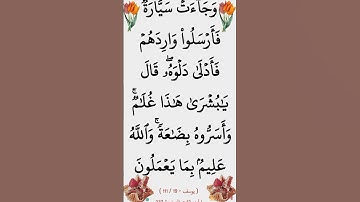 وَجَآءَتْ سَيَّارَةٌ
فَأَرْسَلُوا۟ وَارِدَهُمْ
فَأَدْلَىٰ دَلْوَهُۥ ۖ قَالَ
يَٰبُشْرَىٰ هَٰذَا غُلَٰمٌ ۚ
وَأَسَرُّوهُ بِضَٰعَةً ۚ وَٱللَّهُ
عَلِيمٌۢ بِمَا يَعْمَلُونَ